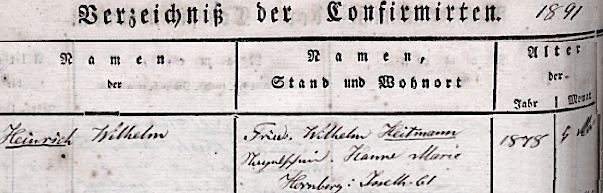 Verzeichniß der Confirmirten. 1891
Namen
der
Namen,
Stand und Wohnort
Alter
der
Jahr Monat
Heinrich Wilhelm
Wilhelm Heitmann
1878
Hanne Marie
Hornberg: